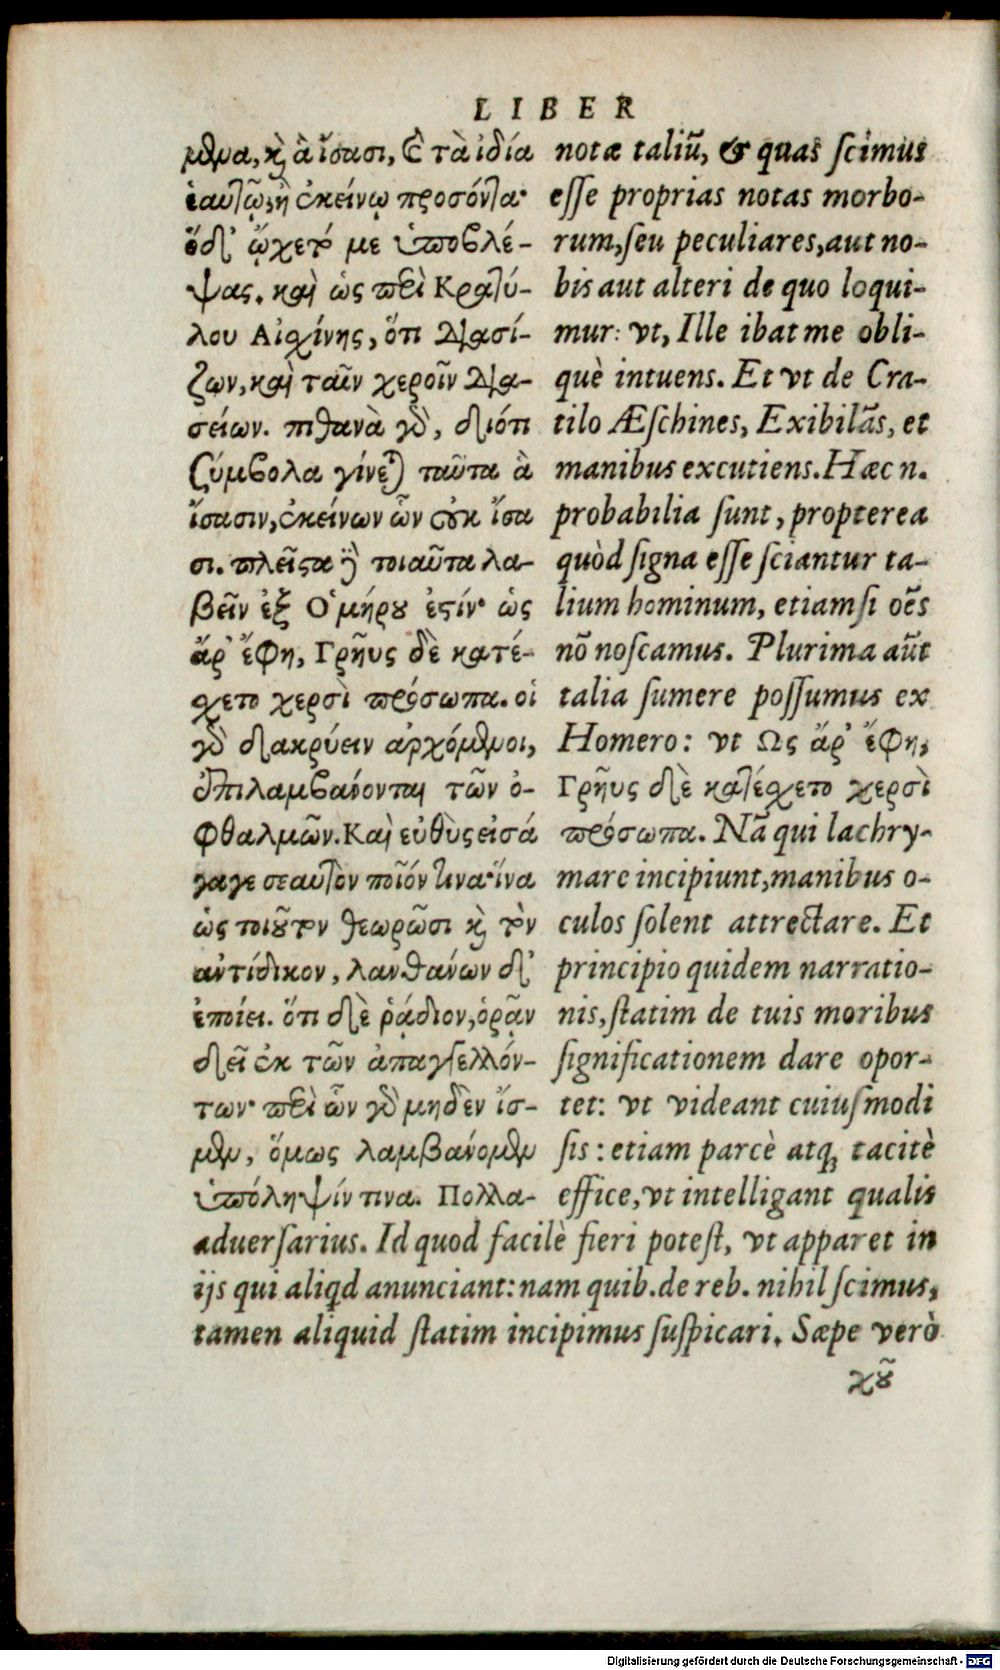 LIBER
μθμα, κὶ ἃ ἴσασι, Ȣ τὰ ἰδία
ἑαυτῷ ἢ ἐκείνῳ προσόντα·
ὁδ' ᾤχετό με ὑποβλέ-
ψας. καὶ ὡς περὶ Κρατύ-
λου Αἰσχίνης, ὅτι διασί-
ζων, καὶ ταῖν χεροῖν δια-
σείων. πιθανὰ γὰρ, διότι
σύμβολα γίνεται ταῦτα ἃ
ἴσασιν, ἐκείνων ὧν οὐκ ἴσα
σι. πλεῖστα δὲ τοιαῦτα λα-
βεῖν ἐξ Ὁμήρου ἐστίν· ὡς
ἄρ' ἔφη, Γρῆυς δὲ κατέ-
χετο χερσὶ πρόσωπα. οἱ
γὰρ δακρύειν ἀρχόμενοι,
ἐπιλαμβάνονται τῶν ὀ-
φθαλμῶν. Καὶ εὐθὺς εἰσά
γαγε σεαυτὸν ποῖόν τινα· ἵνα
ὡς τοιοῦτον θεωρῶσι κὶ τὸν
ἀντίδικον, λανθάνων δ'
ἐποίει. ὅτι δὲ ῥᾴδιον, ὁρᾷν
δεῖ ἐκ τῶν ἀπαγγελλόν-
των· περὶ ὧν γὰρ μηδὲν ἴσ-
μεν, ὅμως λαμβάνομεν
ὑπόληψίν τινα. Πολλα-
notæ taliũ, & quas scimus
esse proprias notas morbo-
rum, seu peculiares, aut no-
bis aut alteri de quo loqui-
mur: vt, Ille ibat me obli-
què intuens. Et vt de Cra-
tilo Æschines, Exibilãs, et
manibus excutiens. Hæc n.
probabilia sunt, propterea
quòd signa esse sciantur ta-
lium hominum, etiamsi oẽs
nõ noscamus. Plurima aũt
talia sumere possumus ex
Homero: vt Ως ἄρ' ἔφη,
Γρῆυς δὲ κατέχετο χερσὶ
πρόσωπα. Nã qui lachry-
mare incipiunt, manibus o-
culos solent attrectare. Et
principio quidem narratio-
nis, statim de tuis moribus
significationem dare opor-
tet: vt videant cuiusmodi
sis: etiam parcè atq; tacitè
effice, vt intelligant qualis
aduersarius. Id quod facilè fieri potest, vt apparet in
ijs qui aliqd anunciant: nam quib. de reb. nihil scimus,
tamen aliquid statim incipimus suspicari. Sæpe verò
χοῦ
Digitalisierung gefördert durch die Deutsche Forschungsgemeinschaft - DFG